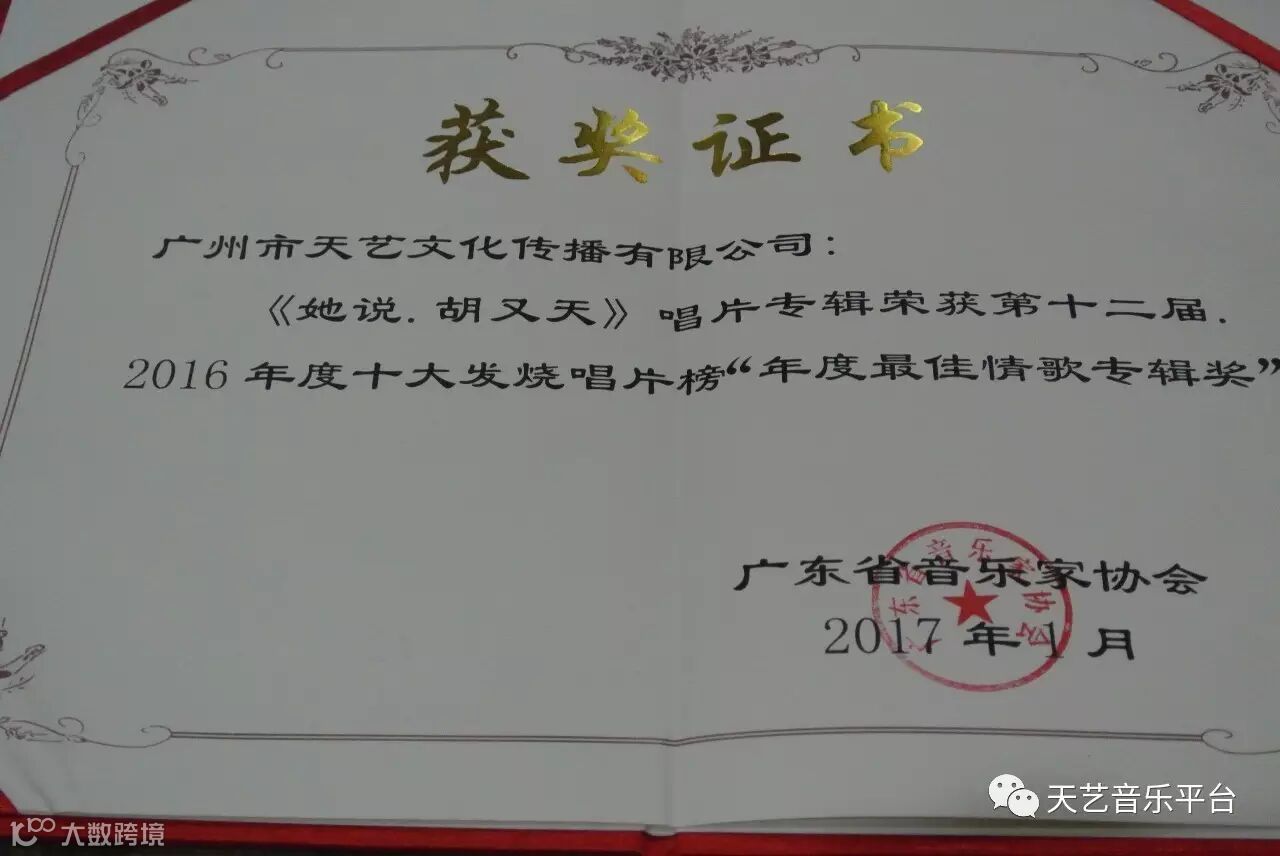 获奖证书
广州市天艺文化传播有限公司：
《她说.胡又天》唱片专辑荣获第十二届.
2016年度十大发烧唱片榜“年度最佳情歌专辑奖”
广东省音乐家协会
2017年1月
天艺音乐平台
大数跨境